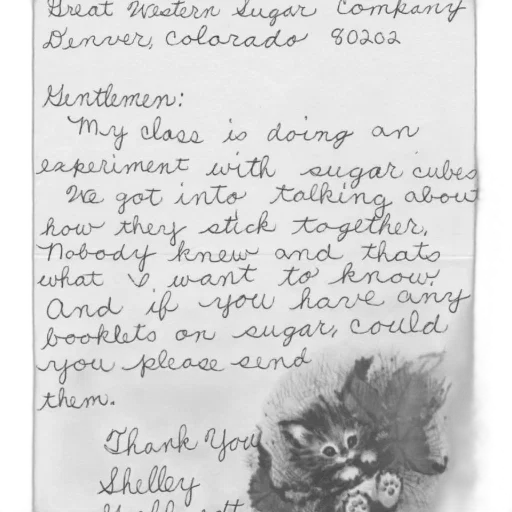 Great Western Sugar Company
Denver, Colorado 80202
Gentlemen:
My class is doing an
experiment with sugar cubes
We got into talking about
how they stick together.
Nobody knew and thats
what I want to know.
And if you have any
booklets on sugar, could
you please send
them.
Thank You
Shelley